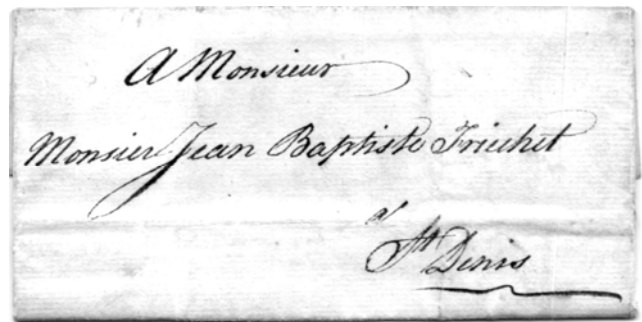 A Monsieur
Monsier Jean Baptiste Frichet
a
St Denis